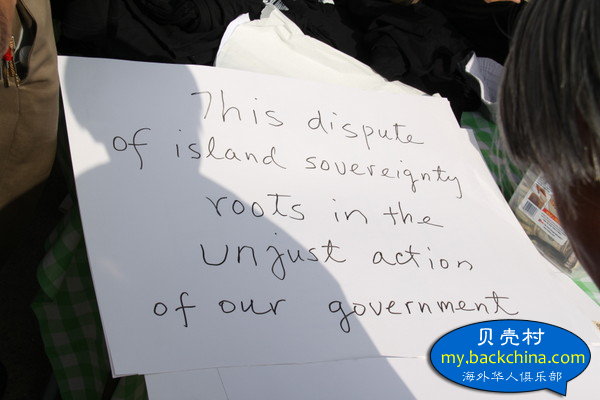 This dispute
of island sovereignty
roots in the
unjust action
of our government
贝壳村
my.backchina.com
海外华人俱乐部